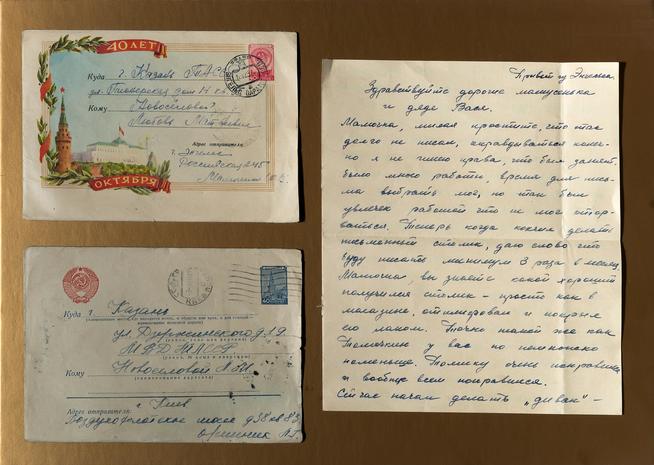 40 ЛЕТ
Куда г. Казань ТАСС
ул. Пионерская дом 14 кв.
Кому Новосёловой
Любовь Матвеевне
Адрес отправителя:
г. Энгельс
Российская 245
ОКТЯБРЯ
Куда г. Казань
ул. Дзержинского д. 19
МВД ТАССР
Кому Новоселовой Л. М.
Адрес отправителя:
г. Киев
Воздухофлотское шоссе д 38 кв 83
Привет из Энгельса.
Здравствуйте дорогие мамусенька
и дядя Вася.
Мамочка, милая простите, что так
долго не писал, оправдываться конеч-
но я не имею права, что был занят,
было много работы, время для пись-
ма выбрать мог, но так был
увлечен работой что не мог отор-
ваться. Теперь когда кончил делать
письменный столик, даю слово что
буду писать минимум 3 раза в месяц.
Мамочка, вы знаете какой хороший
получился столик - просто как в
магазине, отшлифовал и покрыл
его лаком. Точно такой же как
у вас но немножко
поменьше. Томику очень понравился
и вообще всем понравился.
Сейчас начал делать „диван" -